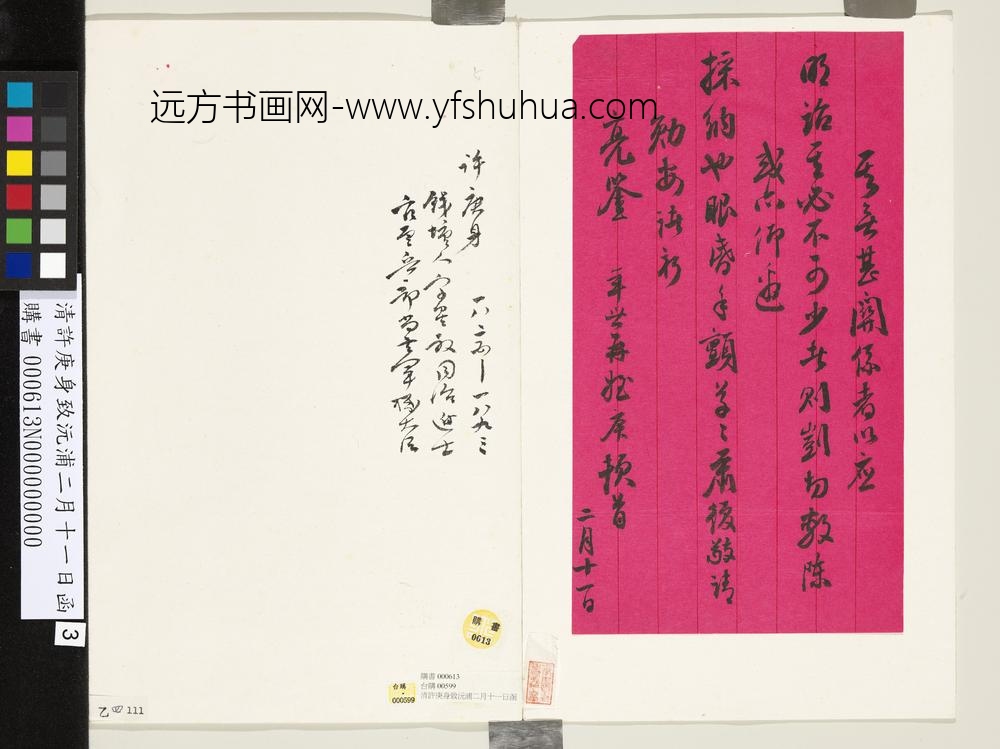 远方书画网-www.yfshuhua.com
甚關係者以應
明詒 必不可少者則剴切敷陳
或亦仰邀
採納也眼昏手顫草草肅復敬請
勛安諸
亮鑒 年世再姪庚身頓首
二月十一日
許庚身 一八二五—一八九三
錢塘人字星叔同治進士
官至兵部尚書軍機大臣
清許庚身致沅浦二月十一日函
購書 000613N000000000
3
購書
0613
台購
000599
購書 000613
台購 00599
清許庚身致沅浦二月十一日函
乙 四 111